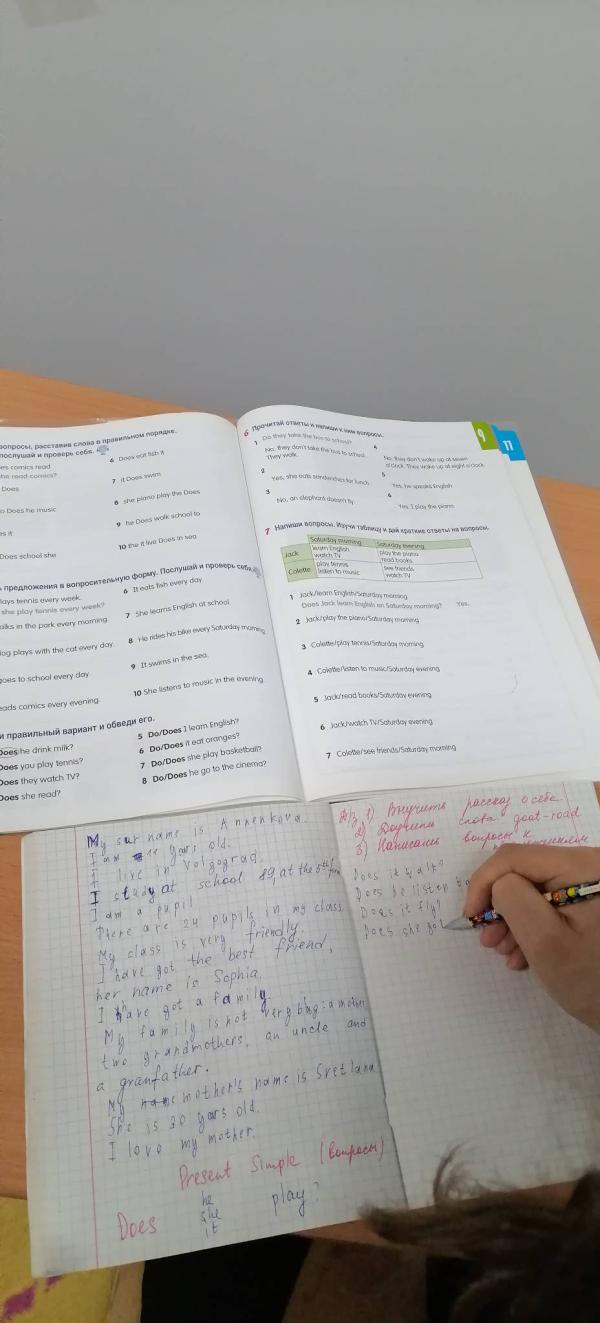 вопросы, расставив слова в правильном порядке.
послушай и проверь себя.
es comics read
he read comics?
Does
o Does he music
es it
Does school she
6 Does eat fish it
7 it Does swim
8 she piano play the Does
9 he Does walk school to
10 the it live Does in sea
предложения в вопросительную форму. Послушай и проверь себя.
lays tennis every week.
she play tennis every week?
alks in the park every morning.
log plays with the cat every day.
goes to school every day.
eads comics every evening.
6 It eats fish every day.
7 She learns English at school
8 He rides his bike every Saturday morning
9 It swims in the sea.
10 She listens to music in the evening.
и правильный вариант и обведи его.
Does he drink milk?
Does you play tennis?
Does they watch TV?
Does she read?
5 Do/Does I learn English?
6 Do/Does it eat oranges?
7 Do/Does she play basketball?
8 Do/Does he go to the cinema?
9
11
6 Прочитай ответы и напиши к ним вопросы.
1 Do they take the bus to school?
No, they don't take the bus to school.
They walk.
2
Yes, she eats sandwiches for lunch.
3
No, an elephant doesn't fly.
4
No, they don't wake up at seven
o'clock. They wake up at eight o'clock.
5
Yes, he speaks English.
6
Yes, I play the piano.
7 Напиши вопросы. Изучи таблицу и дай краткие ответы на вопросы.
Saturday morning Saturday evening
Jack learn English play the piano
watch TV read books
Colette play tennis see friends
listen to music watch TV
1 Jack/learn English/Saturday morning
Does Jack learn English on Saturday morning? Yes.
2 Jack/play the piano/Saturday morning
3 Colette/play tennis/Saturday morning
4 Colette/listen to music/Saturday evening
5 Jack/read books/Saturday evening
6 Jack/watch TV/Saturday evening
7 Colette/see friends/Saturday morning
My surname is Annenkova.
I am years old.
I live in Volgograd.
I study at school 89, at the 5th
I am a pupil
There are 24 pupils in my class
My class is very friendly.
I have got the best friend,
her name is Sophia.
I have got a family.
My family is not very big: a mother,
two grandmothers, an uncle and
a granfather.
My name mother's name is Svetlana
She is 30 yars old.
I love my mother.
Present Simple (вопросы)
he
Does she play?
it
Д/з 1) Выучить рассказ о себе
2) Доучить слова goat-road
3) Написать вопросы к
Does it walk?
Does he listen
Does it fly?
Does she go